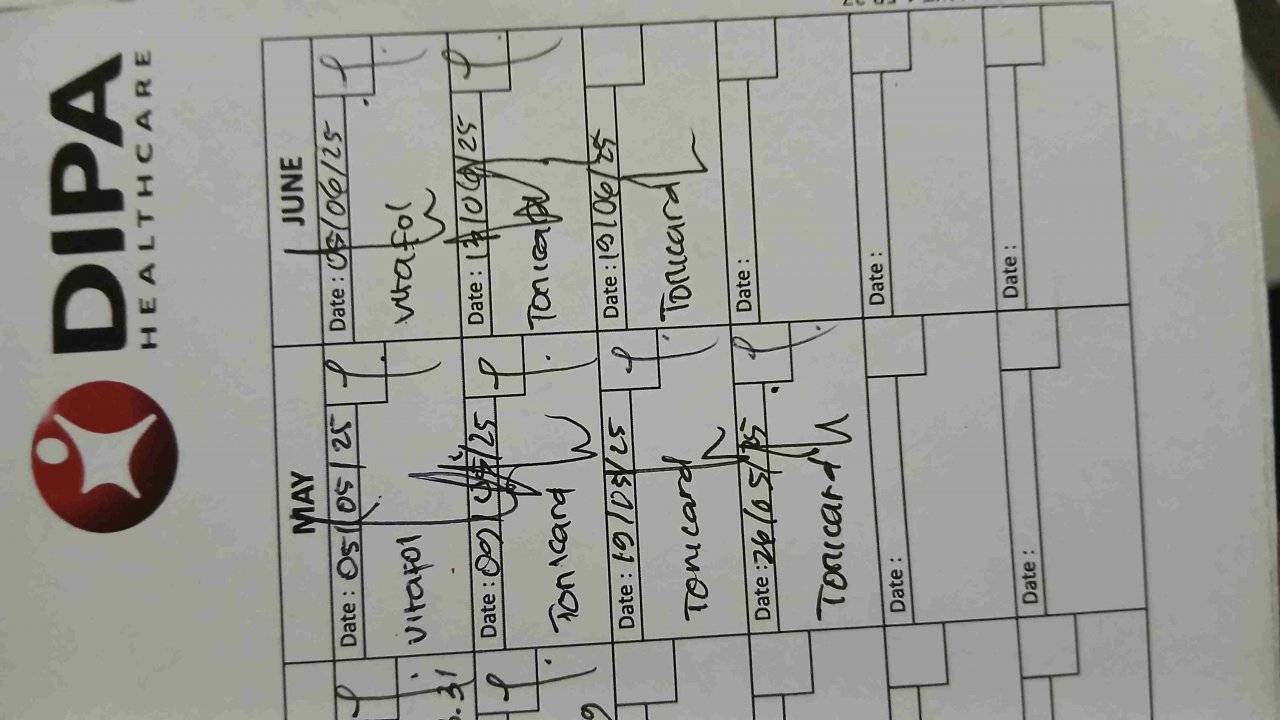 DIPA
HEALTHCARE
MAY
Date : 05/05/25
Vitafol
Date : 09/05/25
Tonicard
Date : 19/05/25
Tonicard
Date : 26/05/25
Tonicard
Date :
Date :
JUNE
Date : 03/06/25
Vitafol
Date : 13/06/25
Date : 19/06/25
Tonicard
Date :
Date :
Date :